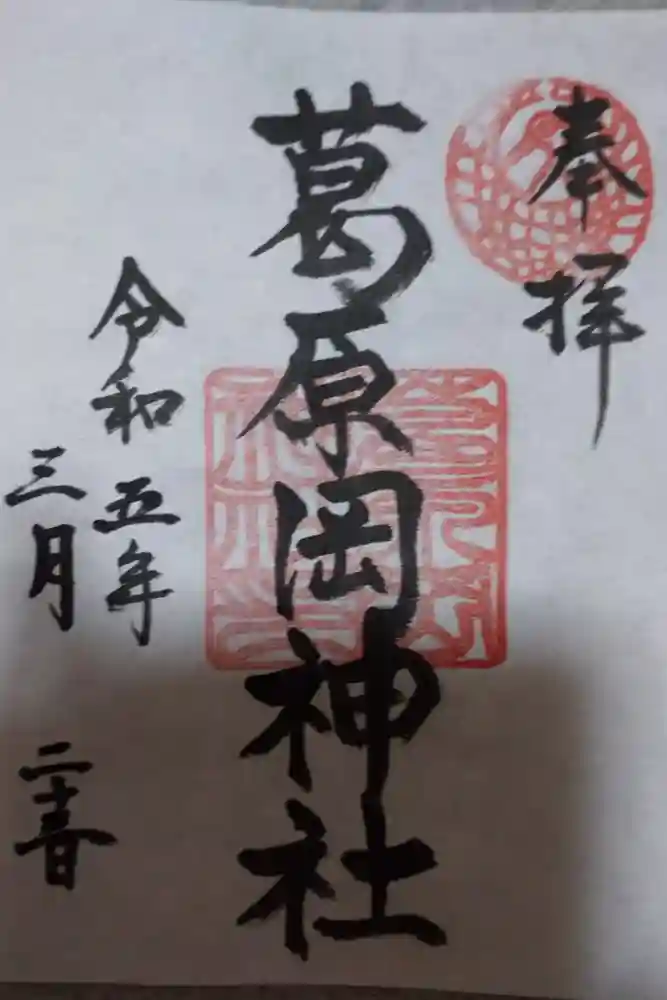 奉拝
葛原岡神社
令和五年
三月二十五日